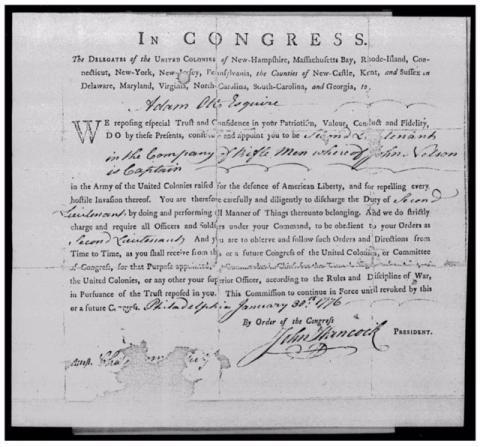 IN CONGRESS.
The DELEGATES of the UNITED COLONIES of New-Hampshire, Massachusetts Bay, Rhode-Island, Con-
necticut, New-York, New-Jersey, Pennsylvania, the Counties of New-Castle, Kent, and Sussex on
Delaware, Maryland, Virginia, North-Carolina, South-Carolina, and Georgia, to
Adam Ott Esquire
WE reposing especial Trust and Confidence in your Patriotism, Valour, Conduct and Fidelity,
DO by these Presents, constitute and appoint you to be Second Lieutenant
in the Company of Rifle Men whereof John Nelson
is Captain
in the Army of the United Colonies raised for the defence of American Liberty, and for repelling every
hostile Invasion thereof. You are therefore carefully and diligently to discharge the Duty of Second
Lieutenant by doing and performing all Manner of Things thereunto belonging. And we do strictly
charge and require all Officers and Soldiers under your Command, to be obedient to your Orders as
Second Lieutenant And you are to observe and follow such Orders and Directions from
Time to Time, as you shall receive from this or a future Congress of the United Colonies, or Committee
of Congress, for that Purpose appointed,
the United Colonies, or any other your superior Officer, according to the Rules and Discipline of War,
in Pursuance of the Trust reposed in you. This Commission to continue in Force until revoked by this
or a future Congress. Philadelphia January 30th 1776
By Order of the Congress
John Hancock PRESIDENT.
Attest. Cha